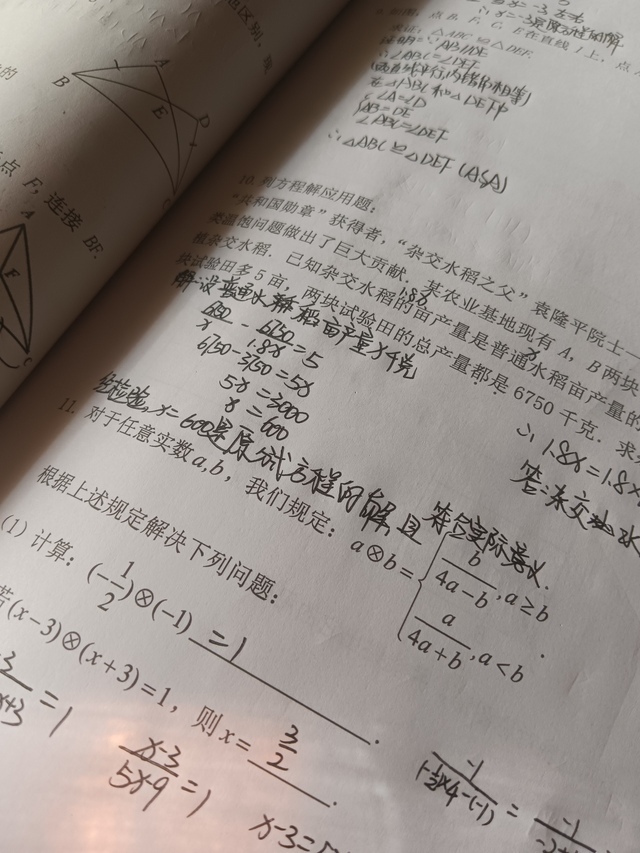 B
A
E
D
F, 连接 BF.
A
F
C
如图, 点 B, F, C, E 在直线 l 上, 点
求证: △ABC ≌ △DEF.
证明: ∵ AB∥DE
∴ ∠ABC=∠DEF
在△ABC 和 △DEF中
∠A=∠D
AB=DE
∠ABC=∠DEF
∴ △ABC ≌ △DEF (ASA)
10. 列方程解应用题:
“共和国勋章”获得者, “杂交水稻之父”袁隆平院士一
类温饱问题做出了巨大贡献. 某农业基地现有 A, B 两块
植杂交水稻. 已知杂交水稻的亩产量是普通水稻亩产量的
1.8x
x
块试验田多 5 亩, 两块试验田的总产量都是 6750 千克. 求
解:设普通水稻亩产量x千克
6750/x - 6750/1.8x = 5
6750-3750=5x
5x=3000
x=600
经检验, x=600是原分式方程的解, 且符合实际意义.
∴ 1.8x=1.8×
答:杂交水
11. 对于任意实数 a,b, 我们规定: a⊗b={b/(4a-b), a≥b
a/(4a+b), a<b .
根据上述规定解决下列问题:
(1) 计算: (-1/2)⊗(-1) =1 .
若(x-3)⊗(x+3)=1, 则 x= 3/2 .
=1
(x-3)/(5x-9)=1
x-3=5